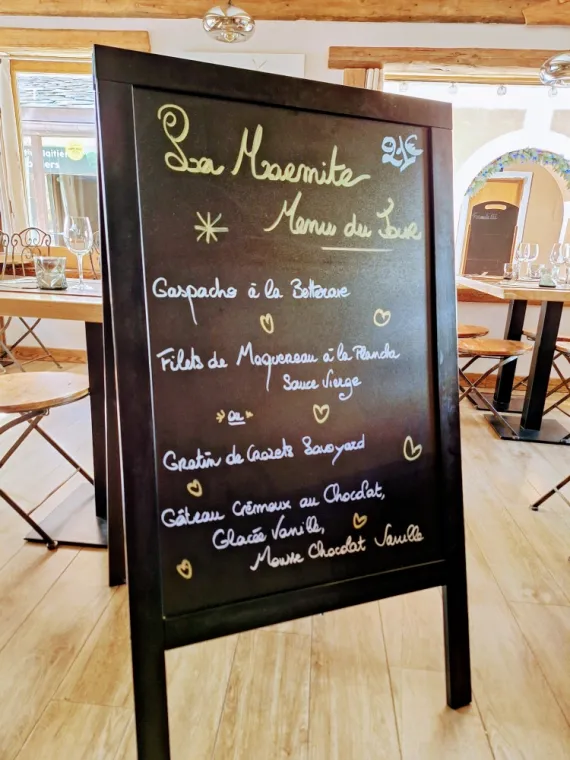 La Marmite
21€
Menu du Jour
Gaspacho à la Betterave
Filets de Maquereau à la Plancha
Sauce Vierge
ou
Gratin de Crozets Savoyard
Gâteau Crémeux au Chocolat,
Glacée Vanille,
Mousse Chocolat Vanille